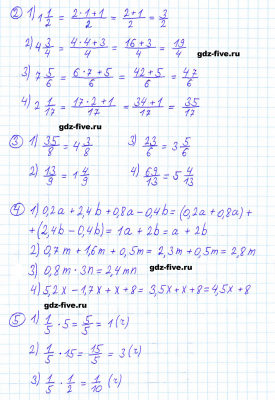 ② 1) 1 1/2 = (2·1+1)/2 = (2+1)/2 = 3/2
2) 4 3/4 = (4·4+3)/4 = (16+3)/4 = 19/4
3) 7 5/6 = (6·7+5)/6 = (42+5)/6 = 47/6
4) 2 1/17 = (17·2+1)/17 = (34+1)/17 = 35/17
gdz-five.ru
gdz-five.ru
③ 1) 35/8 = 4 3/8 3) 23/6 = 3 5/6
2) 13/9 = 1 4/9 4) 69/13 = 5 4/13
gdz-five.ru
④ 1) 0,2a + 2,4b + 0,8a - 0,4b = (0,2a + 0,8a) +
+ (2,4b - 0,4b) = 1a + 2b = a + 2b
2) 0,7m + 1,6m + 0,5m = 2,3m + 0,5m = 2,8m
3) 0,8m · 3n = 2,4mn gdz-five.ru
4) 5,2x - 1,7x + x + 8 = 3,5x + x + 8 = 4,5x + 8
gdz-five.ru
⑤ 1) 1/5 · 5 = 5/5 = 1 (ч)
2) 1/5 · 15 = 15/5 = 3 (ч)
3) 1/5 · 1/2 = 1/10 (ч)